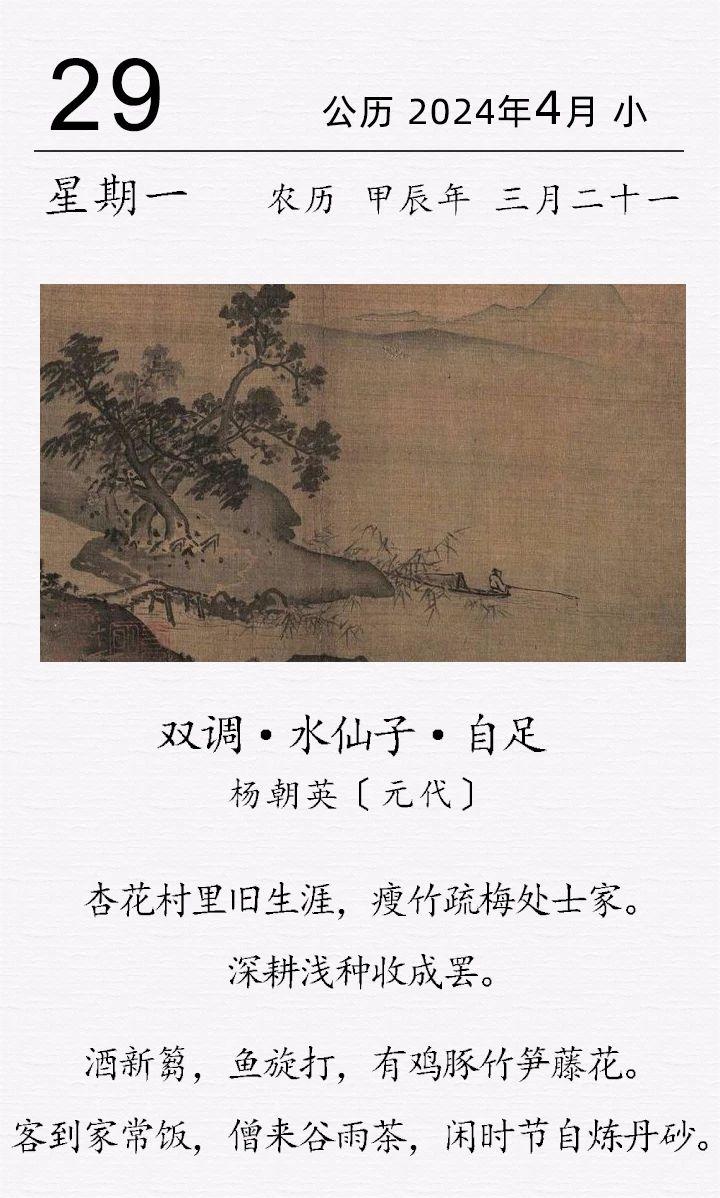 29
公历 2024年4月 小
星期一 农历 甲辰年 三月二十一
双调·水仙子·自足
杨朝英〔元代〕
杏花村里旧生涯，瘦竹疏梅处士家。
深耕浅种收成罢。
酒新篘，鱼旋打，有鸡豚竹笋藤花。
客到家常饭，僧来谷雨茶，闲时节自炼丹砂。